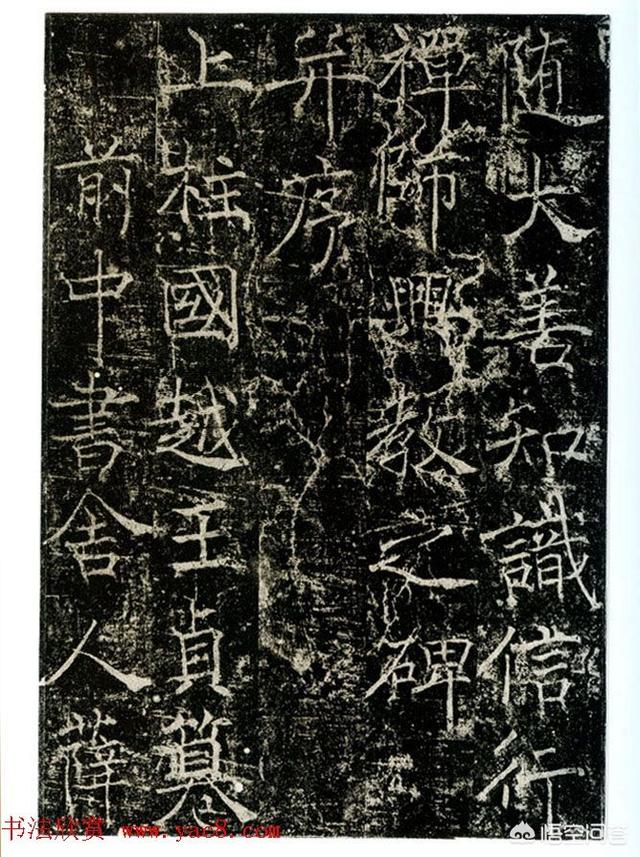 随大善知識信行
禪師興教之碑
并序
上柱國越王貞篡
前中書舍人薛
书法欣赏 www.yac8.com
悟空问答